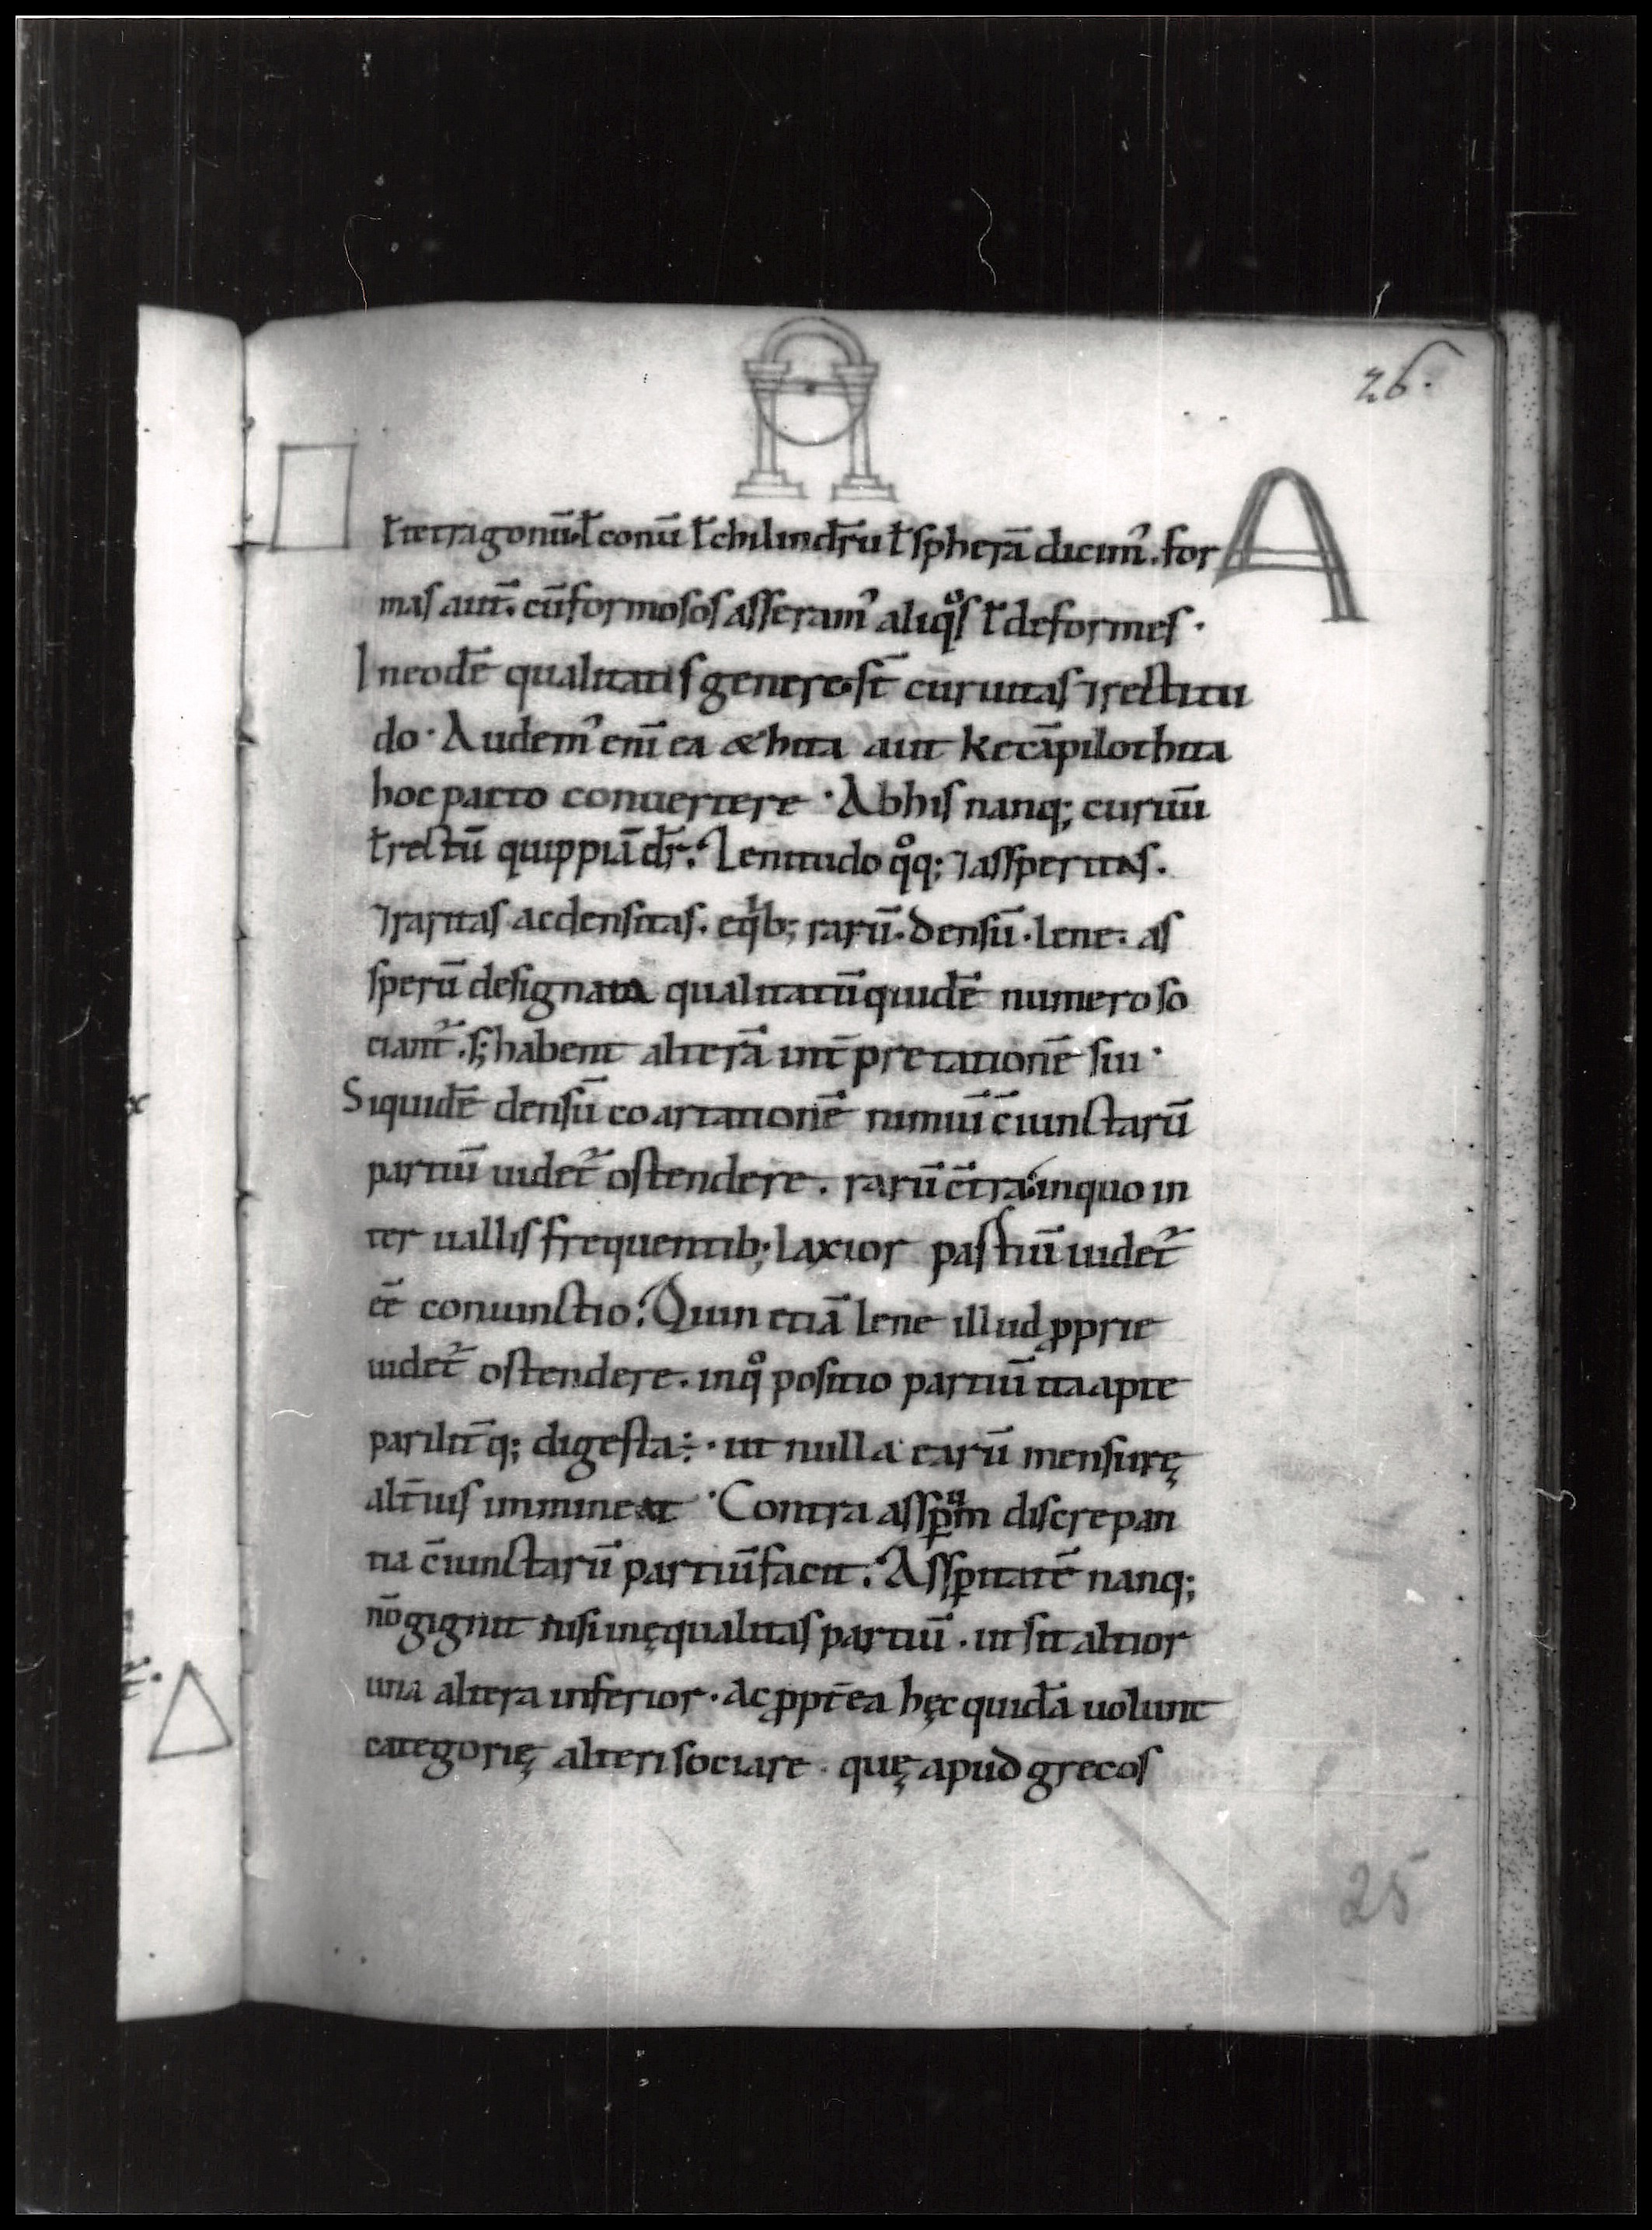 26.
ł tetragonū. ł conū ł chilindr̄u ł spherā dicim᷒. for
mas aut̄. cū formosos asseram᷒ aliqͦs ł deformes ·
In eodē qualitatis genere· st̄ curuitas ⁊ rectitu
do · Audem᷒ eni̅ ea &hita aut Kecāpilothita
hoc pacto conuertere · Ab his nanq; curuū
ł rectū quippiā dr̄. Lenitudo qͦq; ⁊ assperitas.
⁊ raritas ac densitas. e qͥb; rarū. densū. lene. as
sperū designata qualitatū quidē numero so
ciant᷒. s; habent alterā int̄pretationē sui ·
Siquidē densū coartationē nimiū c̄iunctarū
partiū uidet᷒ ostendere. rarū c̄tra in quo in
ter uallis frequentib; laxior pastiū uidet᷒
ēē coniunctio. Quin etiā lene illud ꝓprie
uidet᷒ ostendere. in qͦ positio partiū ita apte
parilit̄q; digesta ÷ · ut nulla earū mensurę
alt̄ius immineat · Contra assꝑͧm discrepan
tia c̄iunctarū partiū facit. Assꝑitatē nanq;
nō gignit nisi inęqualitas partiū. ut sit altior
una altera inferior. Ac ꝓpt̄ea hęc quidā uolunt
categorię alteri sociare. quę apud grecos
25